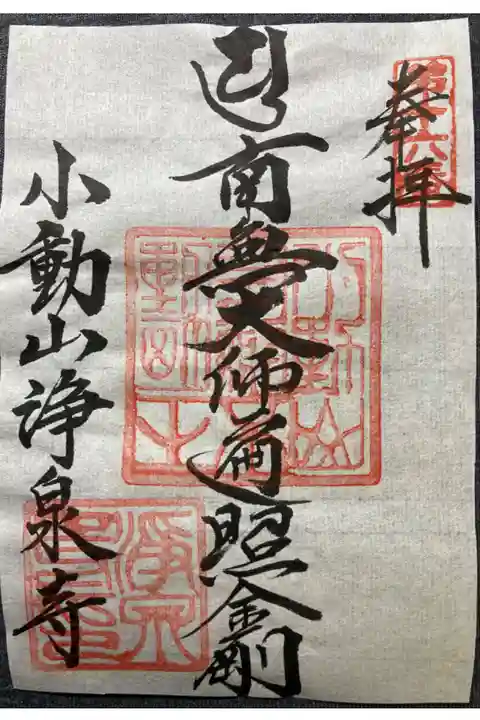 奉拝
第十六番
南無大師遍照金剛
小動山浄泉寺